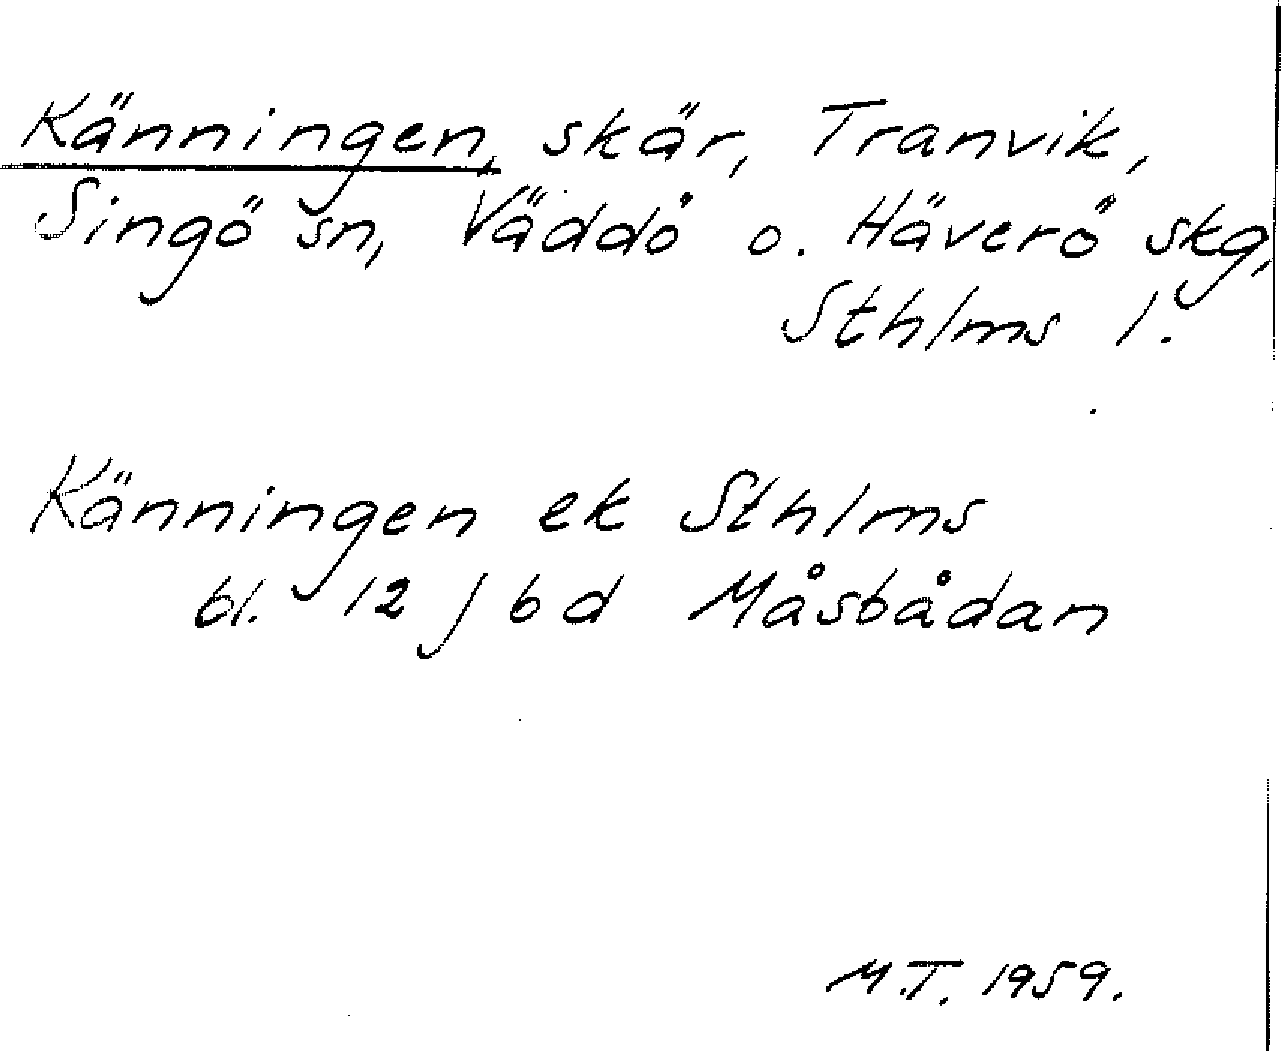 Känningen, skär, Tranvik,
Singö sn, Väddö o. Häverö skg,
Sthlms l.
Känningen ek Sthlms
bl. 12 j bd Måsbådan
M.T. 1959.